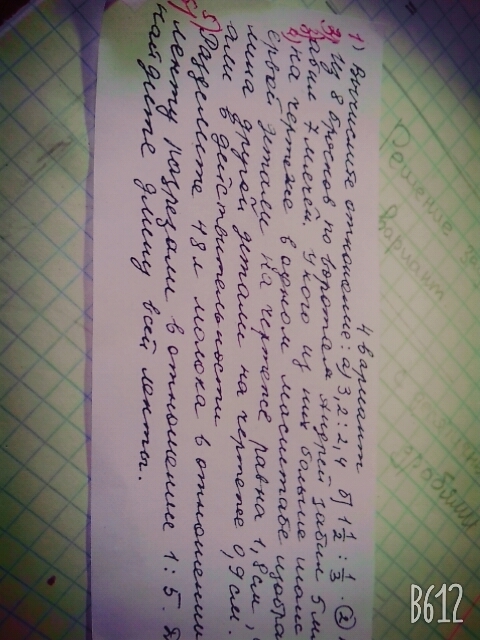 4 вариант
1) Вычислите отношение: а) 3,2 : 2,4 б) 1 1/2 : 1/3. (2)
Из 8 бросков по воротам Андрей забил 5 м
забил 7 мячей. У кого из них больше шанс
на чертеже в одном масштабе изобра
ервой детали на чертеже равна 1,8 см,
лина другой детали на чертеже 0,9 см.
али в действительности
5) Разделите 48 л молока в отношении
ленту разрезали в отношении 1 : 5.
найдите длину всей ленты.
Решение
вариант
B612